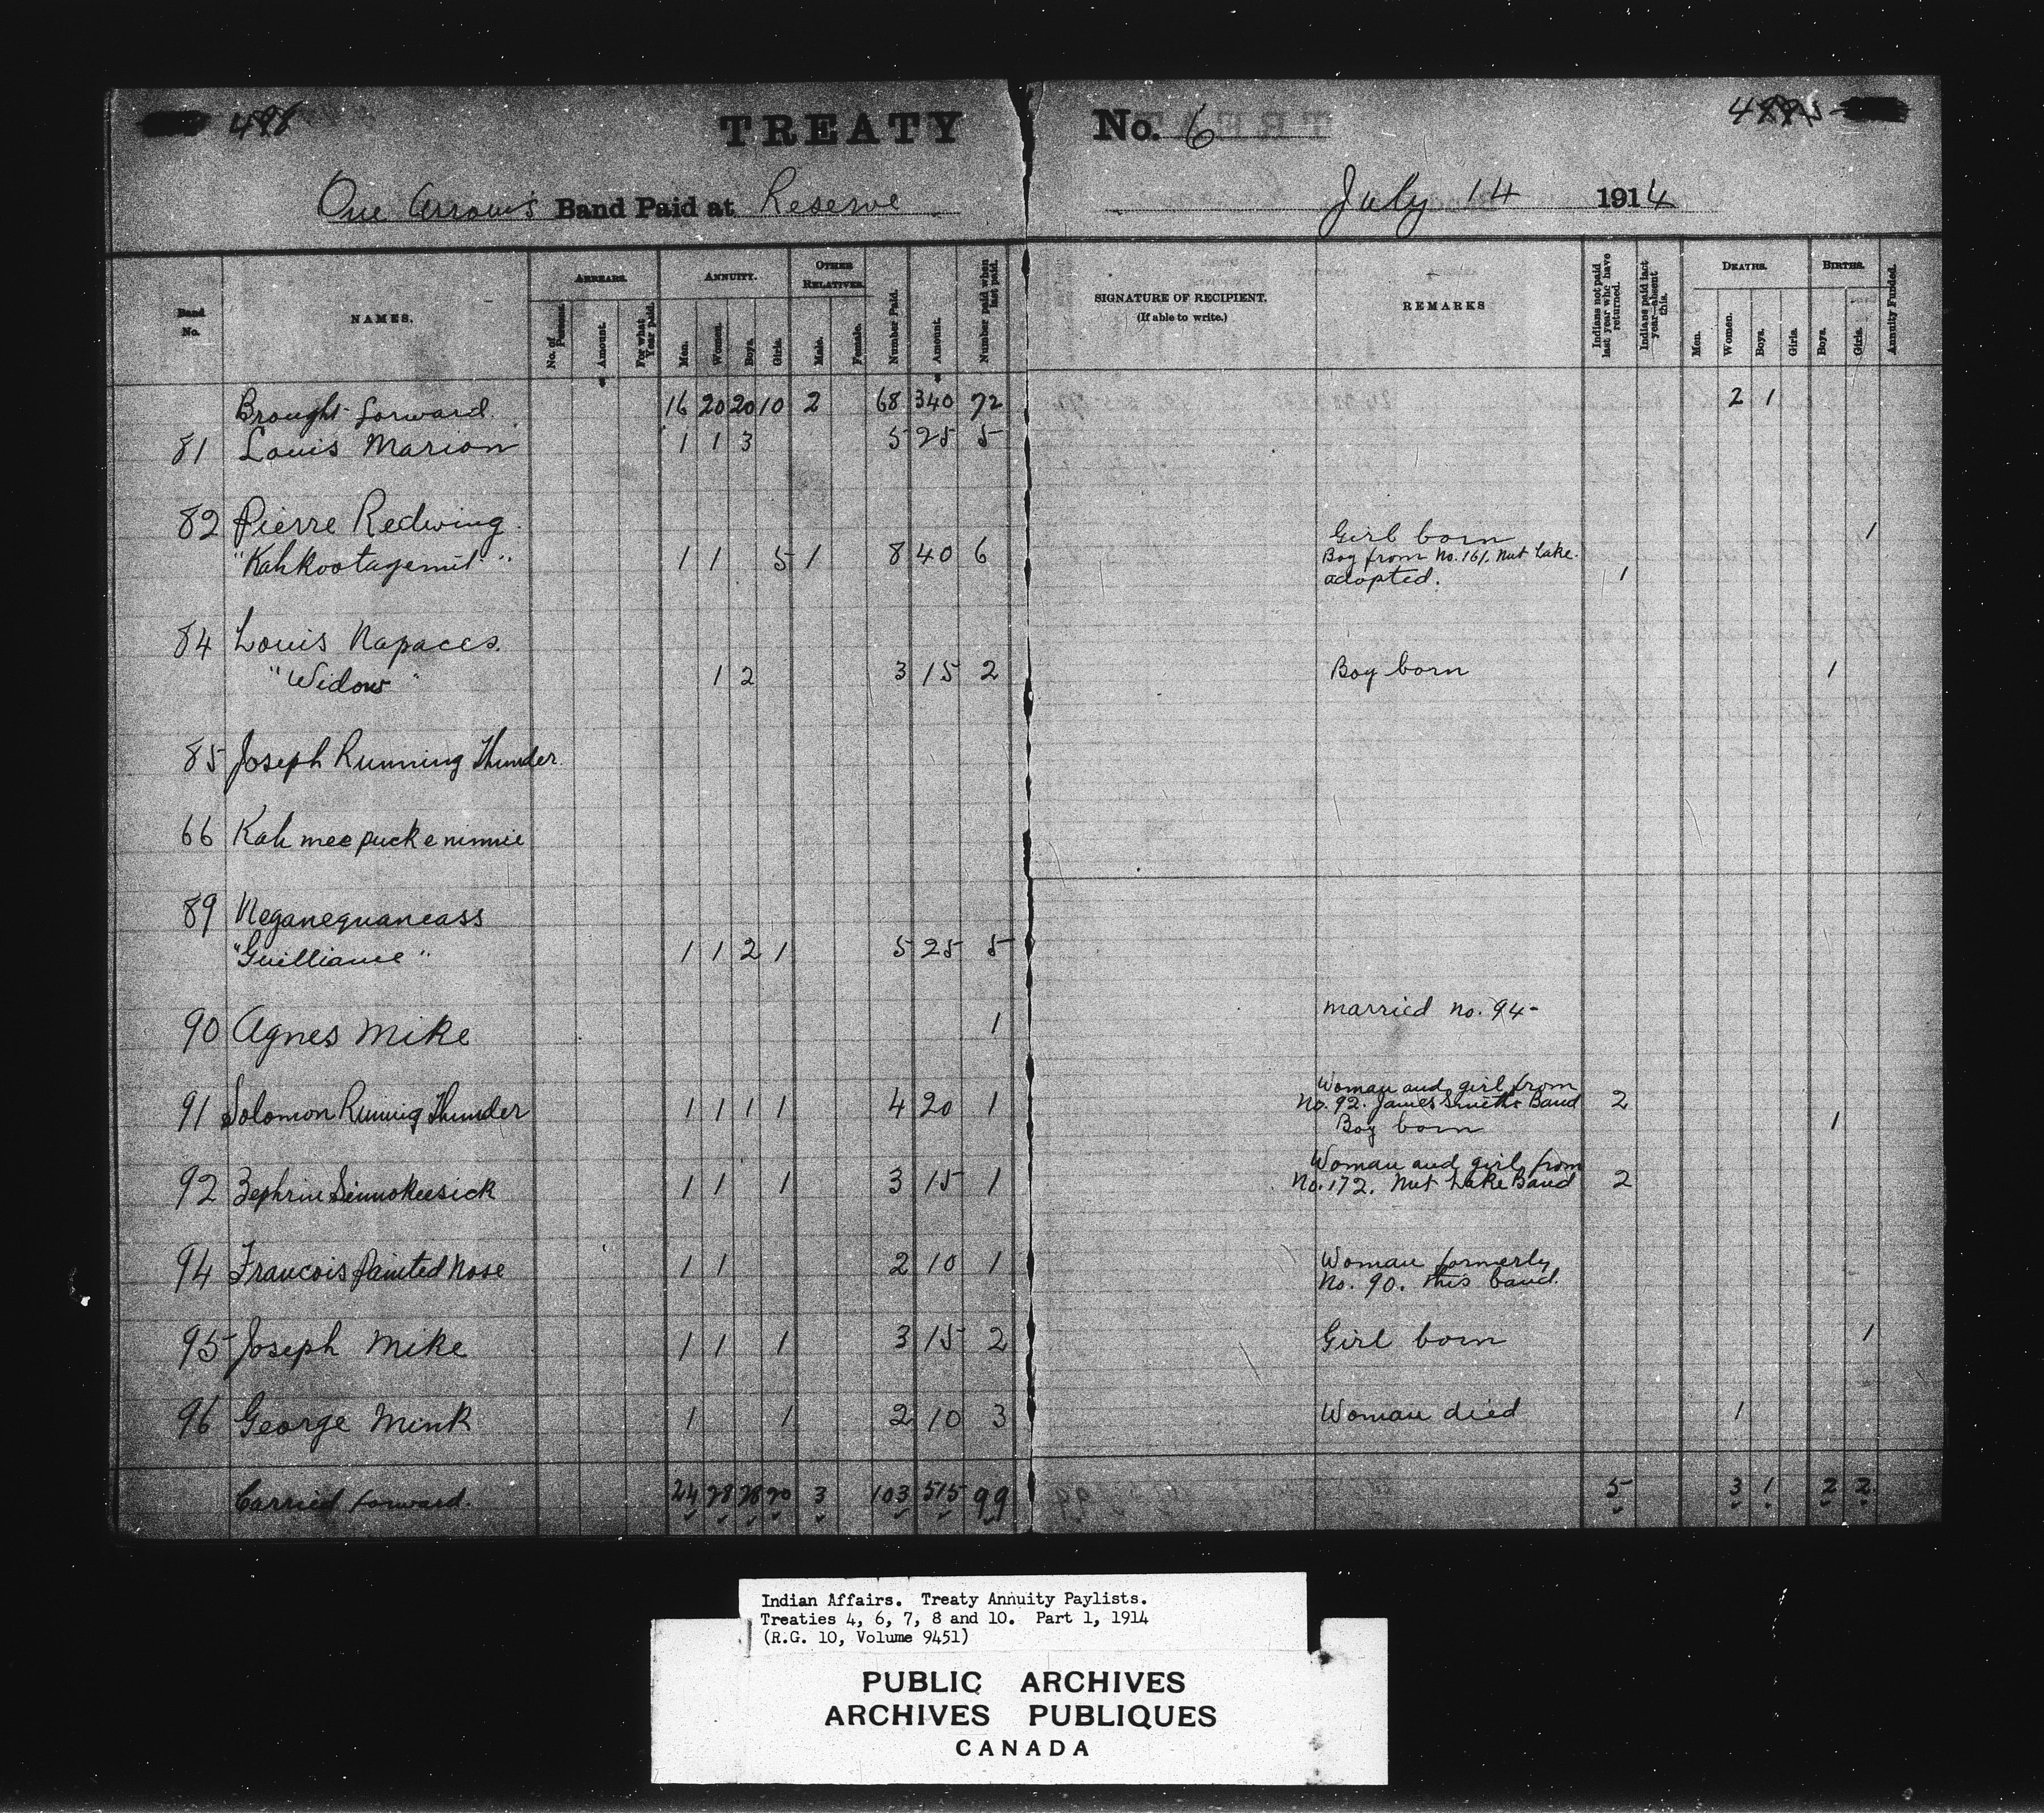 498
TREATY No. 6
489
One Arrow's Band Paid at Reserve July 14 1914
Band No.
NAMES.
ARREARS.
No. of Persons.
Amount.
For what Year paid.
ANNUITY.
Men.
Women.
Boys.
Girls.
OTHER RELATIVES.
Male.
Female.
Number Paid.
Amount.
Number paid when last paid.
SIGNATURE OF RECIPIENT.
(If able to write.)
REMARKS
Indians not paid last year who have returned.
Indians paid last year—absent this.
DEATHS.
Men.
Women.
Boys.
Girls.
BIRTHS.
Boys.
Girls.
Annuity Funded.
Brought forward. 16 20 20 10 2 68 340 72 2 1
81 Louis Marion 1 1 3 5 25 5
82 Pierre Redwing. Girl born 1
"Kahkootagemit" 1 1 5 1 8 40 6 Boy from No. 161. Nut Lake.
adopted. 1
84 Louis Napaces.
"Widow" 1 2 3 15 2 Boy born 1
85 Joseph Running Thunder.
66 Kah mee puck e ninnie
89 Neganequaneass
"Guilliaume" 1 1 2 1 5 25 5
90 Agnes Mike 1 married no. 94-
Woman and girl from
91 Solomon Running Thunder 1 1 1 1 4 20 1 No. 92. James Smith's Band 2
Boy born 1
Woman and girl from
92 Zephrin Sinnokeesick 1 1 1 3 15 1 No. 172. Nut Lake Band 2
94 Francois Painted Nose 1 1 2 10 1 Woman formerly
No. 90. this band.
95 Joseph Mike 1 1 1 3 15 2 Girl born 1
96 George Mink 1 1 2 10 3 Woman died 1
Carried forward. 24 28 28 20 3 103 515 99 5 3 1 2 2
Indian Affairs. Treaty Annuity Paylists.
Treaties 4, 6, 7, 8 and 10. Part 1, 1914
(R.G. 10, Volume 9451)
PUBLIC ARCHIVES
ARCHIVES PUBLIQUES
CANADA